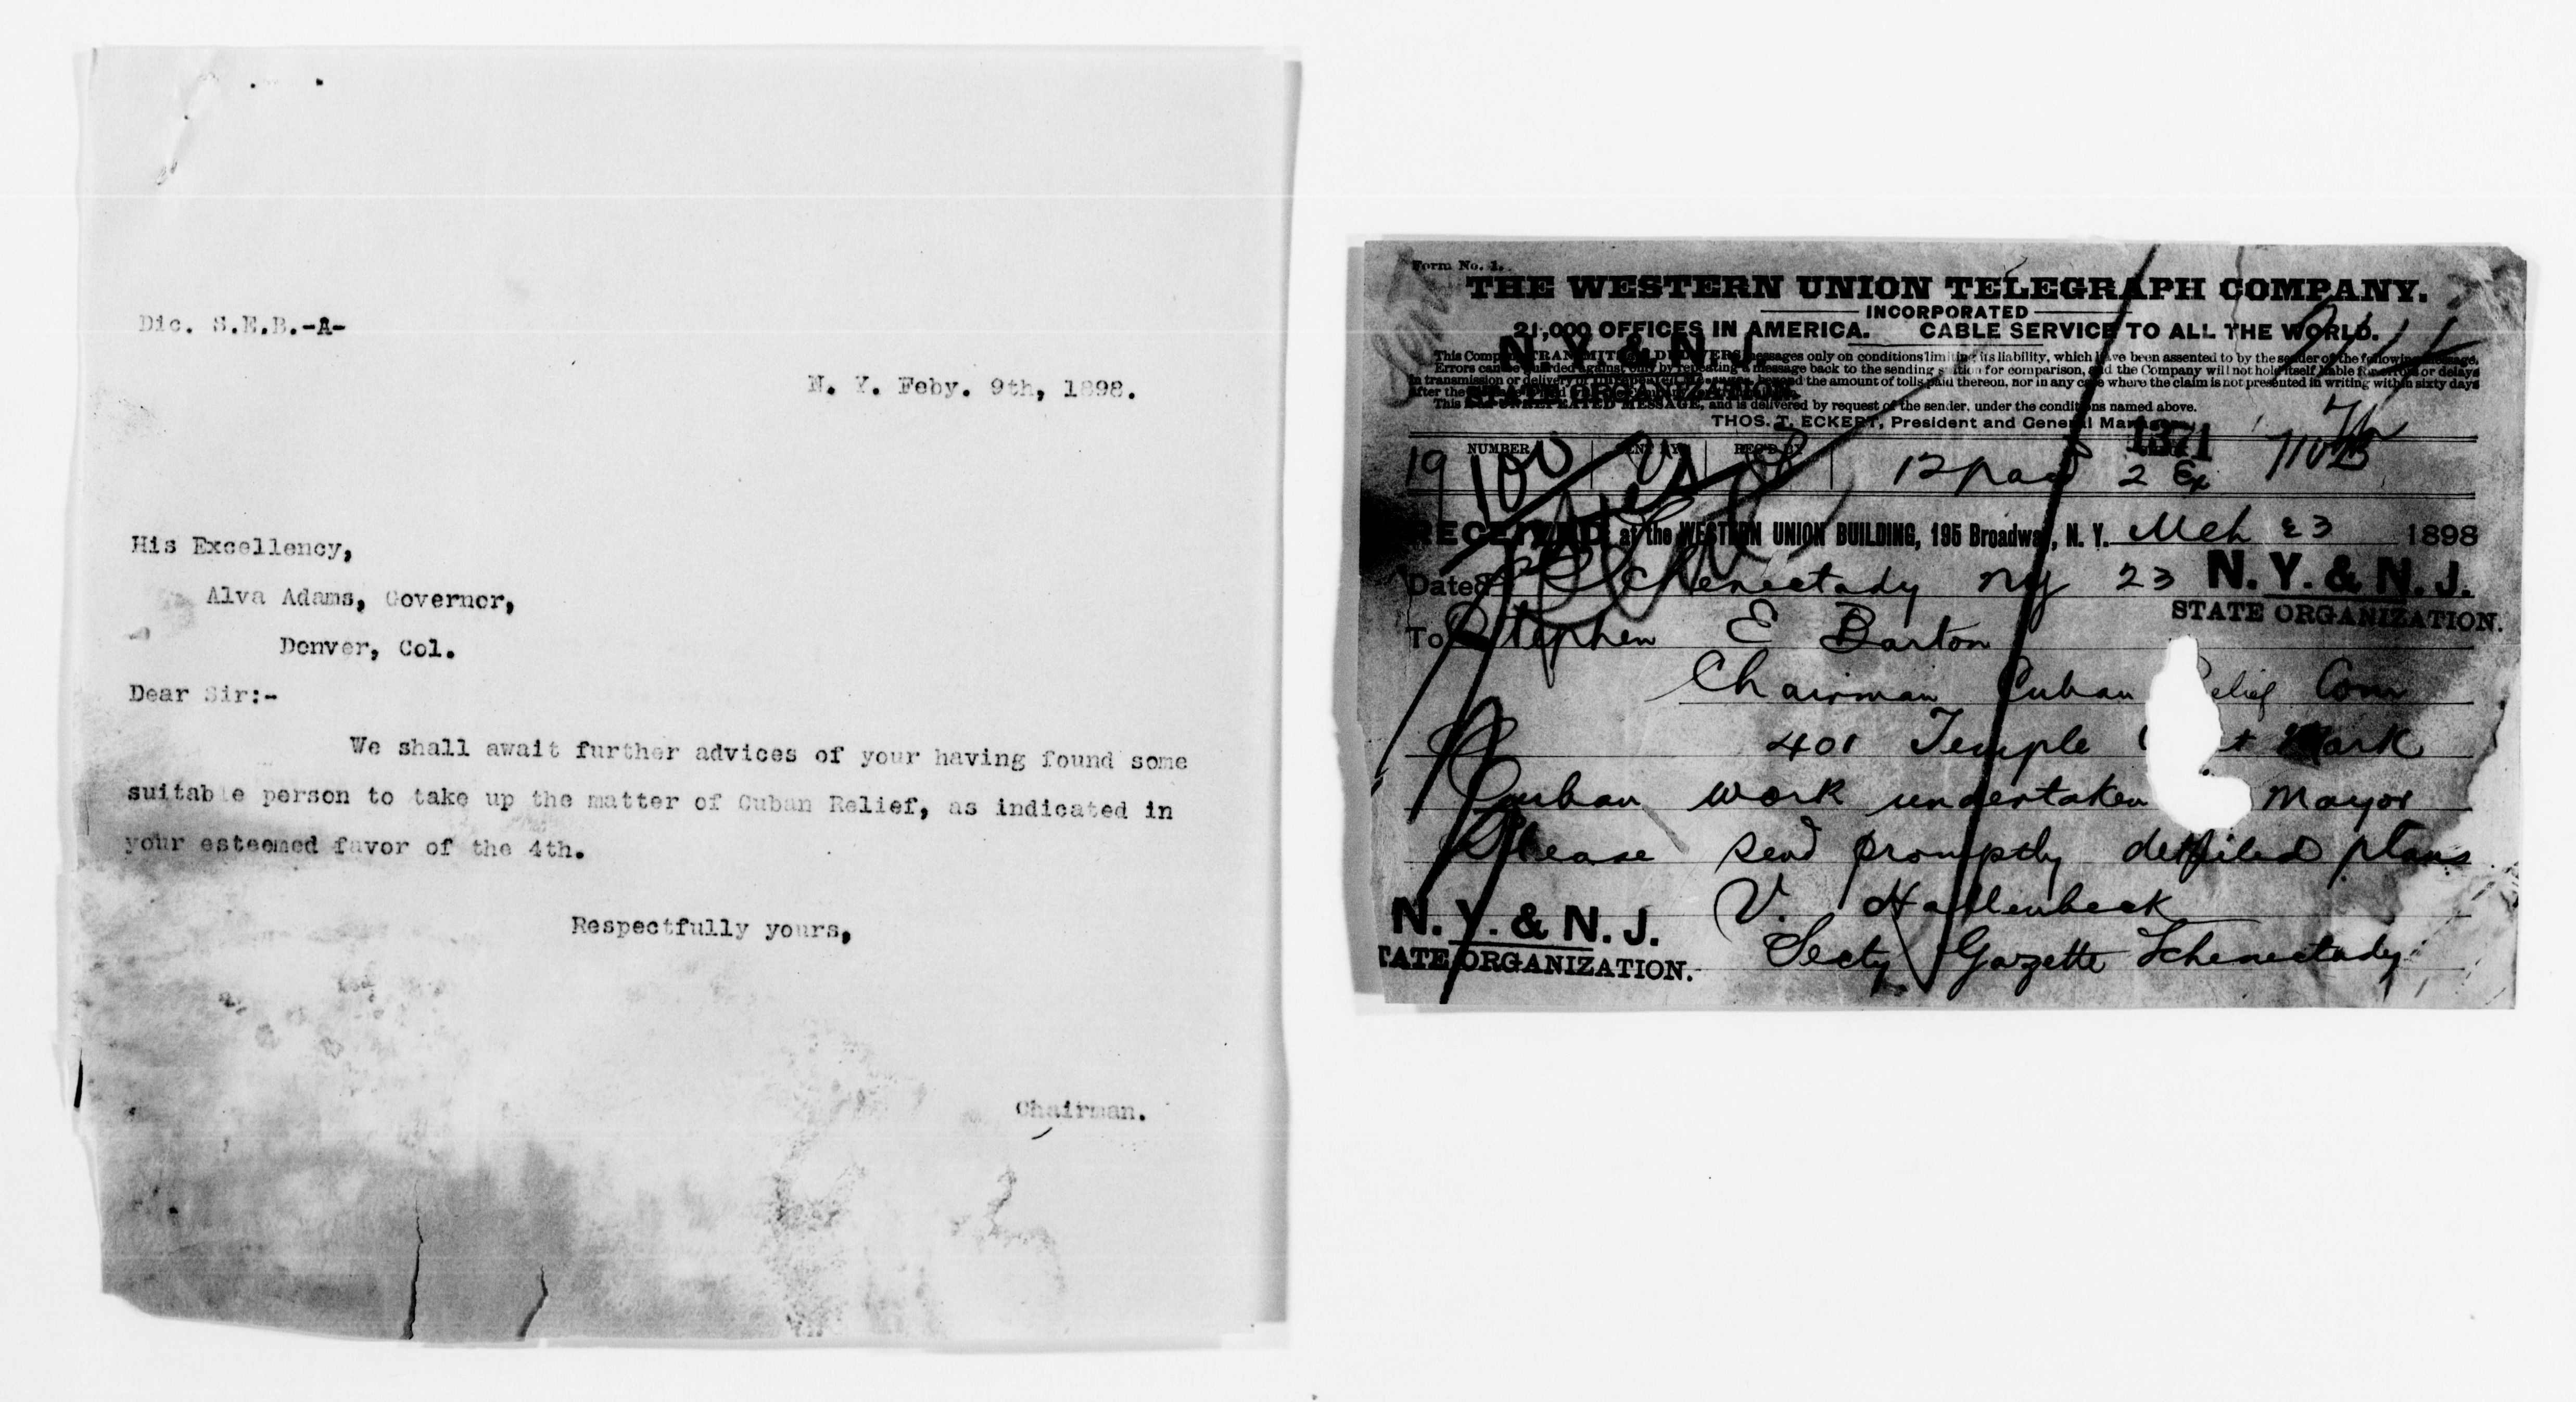 Dic. S.E.B.-A-
N. Y. Feby. 9th, 1898.
His Excellency,
Alva Adams, Governor,
Denver, Col.
Dear Sir:-
We shall await further advices of your having found some
suitable person to take up the matter of Cuban Relief, as indicated in
your esteemed favor of the 4th.
Respectfully yours,
Chairman.
Form No. 1.
THE WESTERN UNION TELEGRAPH COMPANY.
INCORPORATED
21,000 OFFICES IN AMERICA. CABLE SERVICE TO ALL THE WORLD.
N. Y. & N. J.
STATE ORGANIZATION.
This Company TRANSMITS and DELIVERS messages only on conditions limiting its liability, which have been assented to by the sender of the following message.
Errors can be guarded against only by repeating a message back to the sending station for comparison, and the Company will not hold itself liable for errors or delays
in transmission or delivery of Unrepeated Messages, beyond the amount of tolls paid thereon, nor in any case where the claim is not presented in writing within sixty days
after the
This is an UNREPEATED MESSAGE, and is delivered by request of the sender, under the conditions named above.
THOS. T. ECKERT, President and General Manager.
NUMBER SENT BY REC'D BY
1371
19 100 12 paid 2 Ex
RECEIVED at the WESTERN UNION BUILDING, 195 Broadway, N. Y. Mch 23 1898
Dated Schenectady NY 23
N. Y. & N. J.
STATE ORGANIZATION.
To Stephen E Barton
Chairman Cuban elief Com
401 Temple
Cuban work undertaken Mayor
Please send promptly detailed plans
V. Hallenbeck
Secty Gazette Schenectady
N. Y. & N. J.
TATE ORGANIZATION.